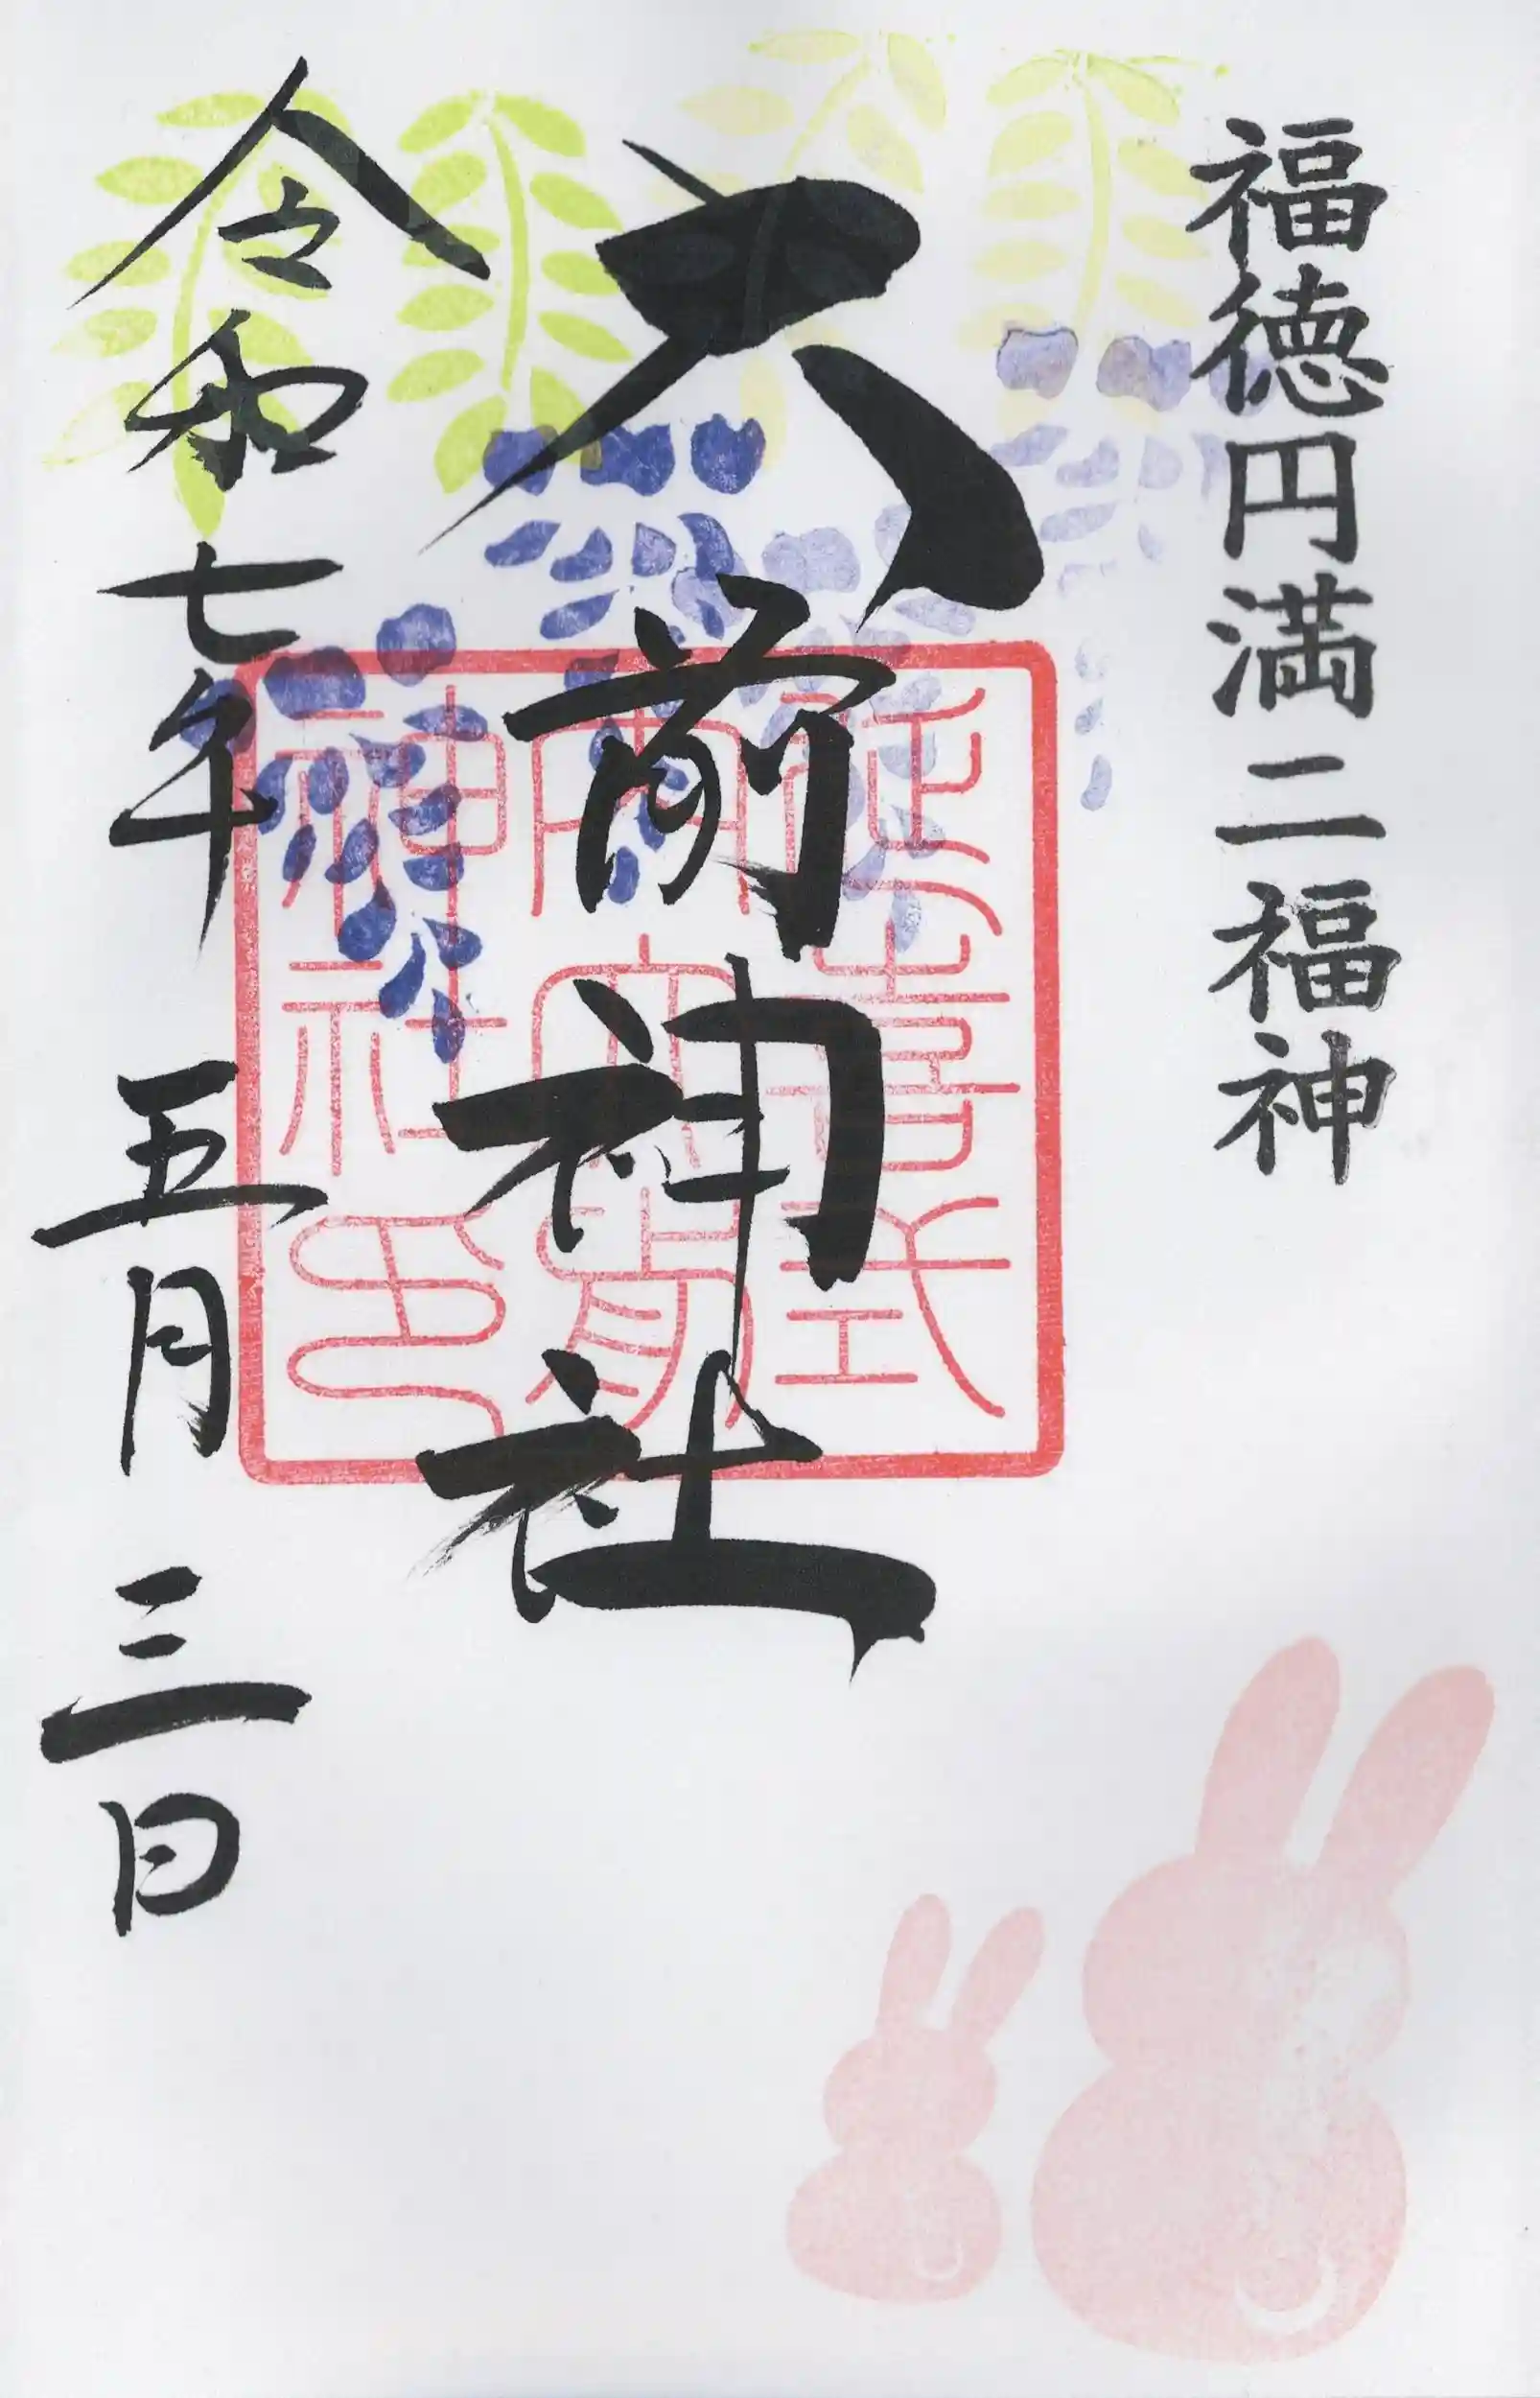 福徳円満二福神
大前神社
延喜式
内大前
神社印
令和七年五月三日